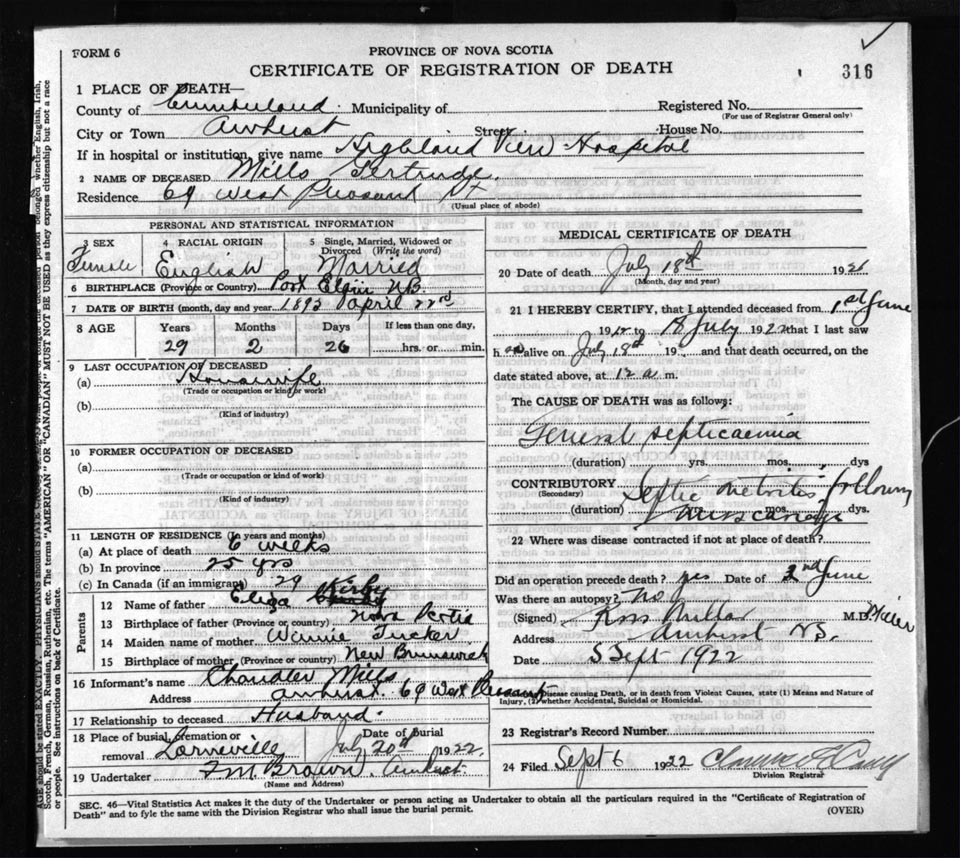 FORM 6
PROVINCE OF NOVA SCOTIA
CERTIFICATE OF REGISTRATION OF DEATH
316
1 PLACE OF DEATH—
County of Cumberland. Municipality of Registered No.
(For use of Registrar General only)
City or Town Amherst Street House No.
If in hospital or institution, give name Highland View Hospital
2 NAME OF DECEASED Mills Gertrude.
Residence 69 West Pleasant St
(Usual place of abode)
PERSONAL AND STATISTICAL INFORMATION
3 SEX 4 RACIAL ORIGIN 5 Single, Married, Widowed or Divorced (Write the word)
Female English Married
6 BIRTHPLACE (Province or Country) Port Elgin NB.
7 DATE OF BIRTH (month, day and year 1893 April 22nd
8 AGE Years Months Days If less than one day,
29 2 26 hrs. or min.
9 LAST OCCUPATION OF DECEASED
(a) Housewife
(Trade or occupation or kind of work)
(b)
(Kind of industry)
10 FORMER OCCUPATION OF DECEASED
(a)
(Trade or occupation or kind of work)
(b)
(Kind of industry)
11 LENGTH OF RESIDENCE (In years and months)
(a) At place of death 6 weeks
(b) In province 25 yrs
(c) In Canada (if an immigrant) 29
Parents
12 Name of father Kirby
13 Birthplace of father (Province or country) Nova Scotia
14 Maiden name of mother Winnie Tucker
15 Birthplace of mother (Province or country) New Brunswick
16 Informant's name Chandler Mills
Address Amherst. 69 West Pleasant
17 Relationship to deceased Husband.
18 Place of burial, cremation or removal Lorneville Date of burial July 20th 1922.
19 Undertaker F M Brown. Amherst.
(Name and Address)
MEDICAL CERTIFICATE OF DEATH
20 Date of death July 18th 192
(Month, day and year)
21 I HEREBY CERTIFY, that I attended deceased from 1st June
19 to 18 July 1922 that I last saw
h alive on July 18th 19 and that death occurred, on the
date stated above, at 12 a m.
The CAUSE OF DEATH was as follows:
General septicaemia
(duration) yrs. mos. dys
CONTRIBUTORY Septic metritis following
(Secondary)
(duration) yrs. mos. dys.
miscarriage
22 Where was disease contracted if not at place of death?
Did an operation precede death? yes Date of 2nd June
Was there an autopsy? no
(Signed) Ross Millar M.D.
Address Amherst NS.
Date 5 Sept 1922
Disease causing Death, or in death from Violent Causes, state (1) Means and Nature of
Injury, (2) whether Accidental, Suicidal or Homicidal.
23 Registrar's Record Number.
24 Filed Sept 6 1922
Division Registrar
SEC. 46—Vital Statistics Act makes it the duty of the Undertaker or person acting as Undertaker to obtain all the particulars required in the "Certificate of Registration of
Death" and to fyle the same with the Division Registrar who shall issue the burial permit.
(OVER)